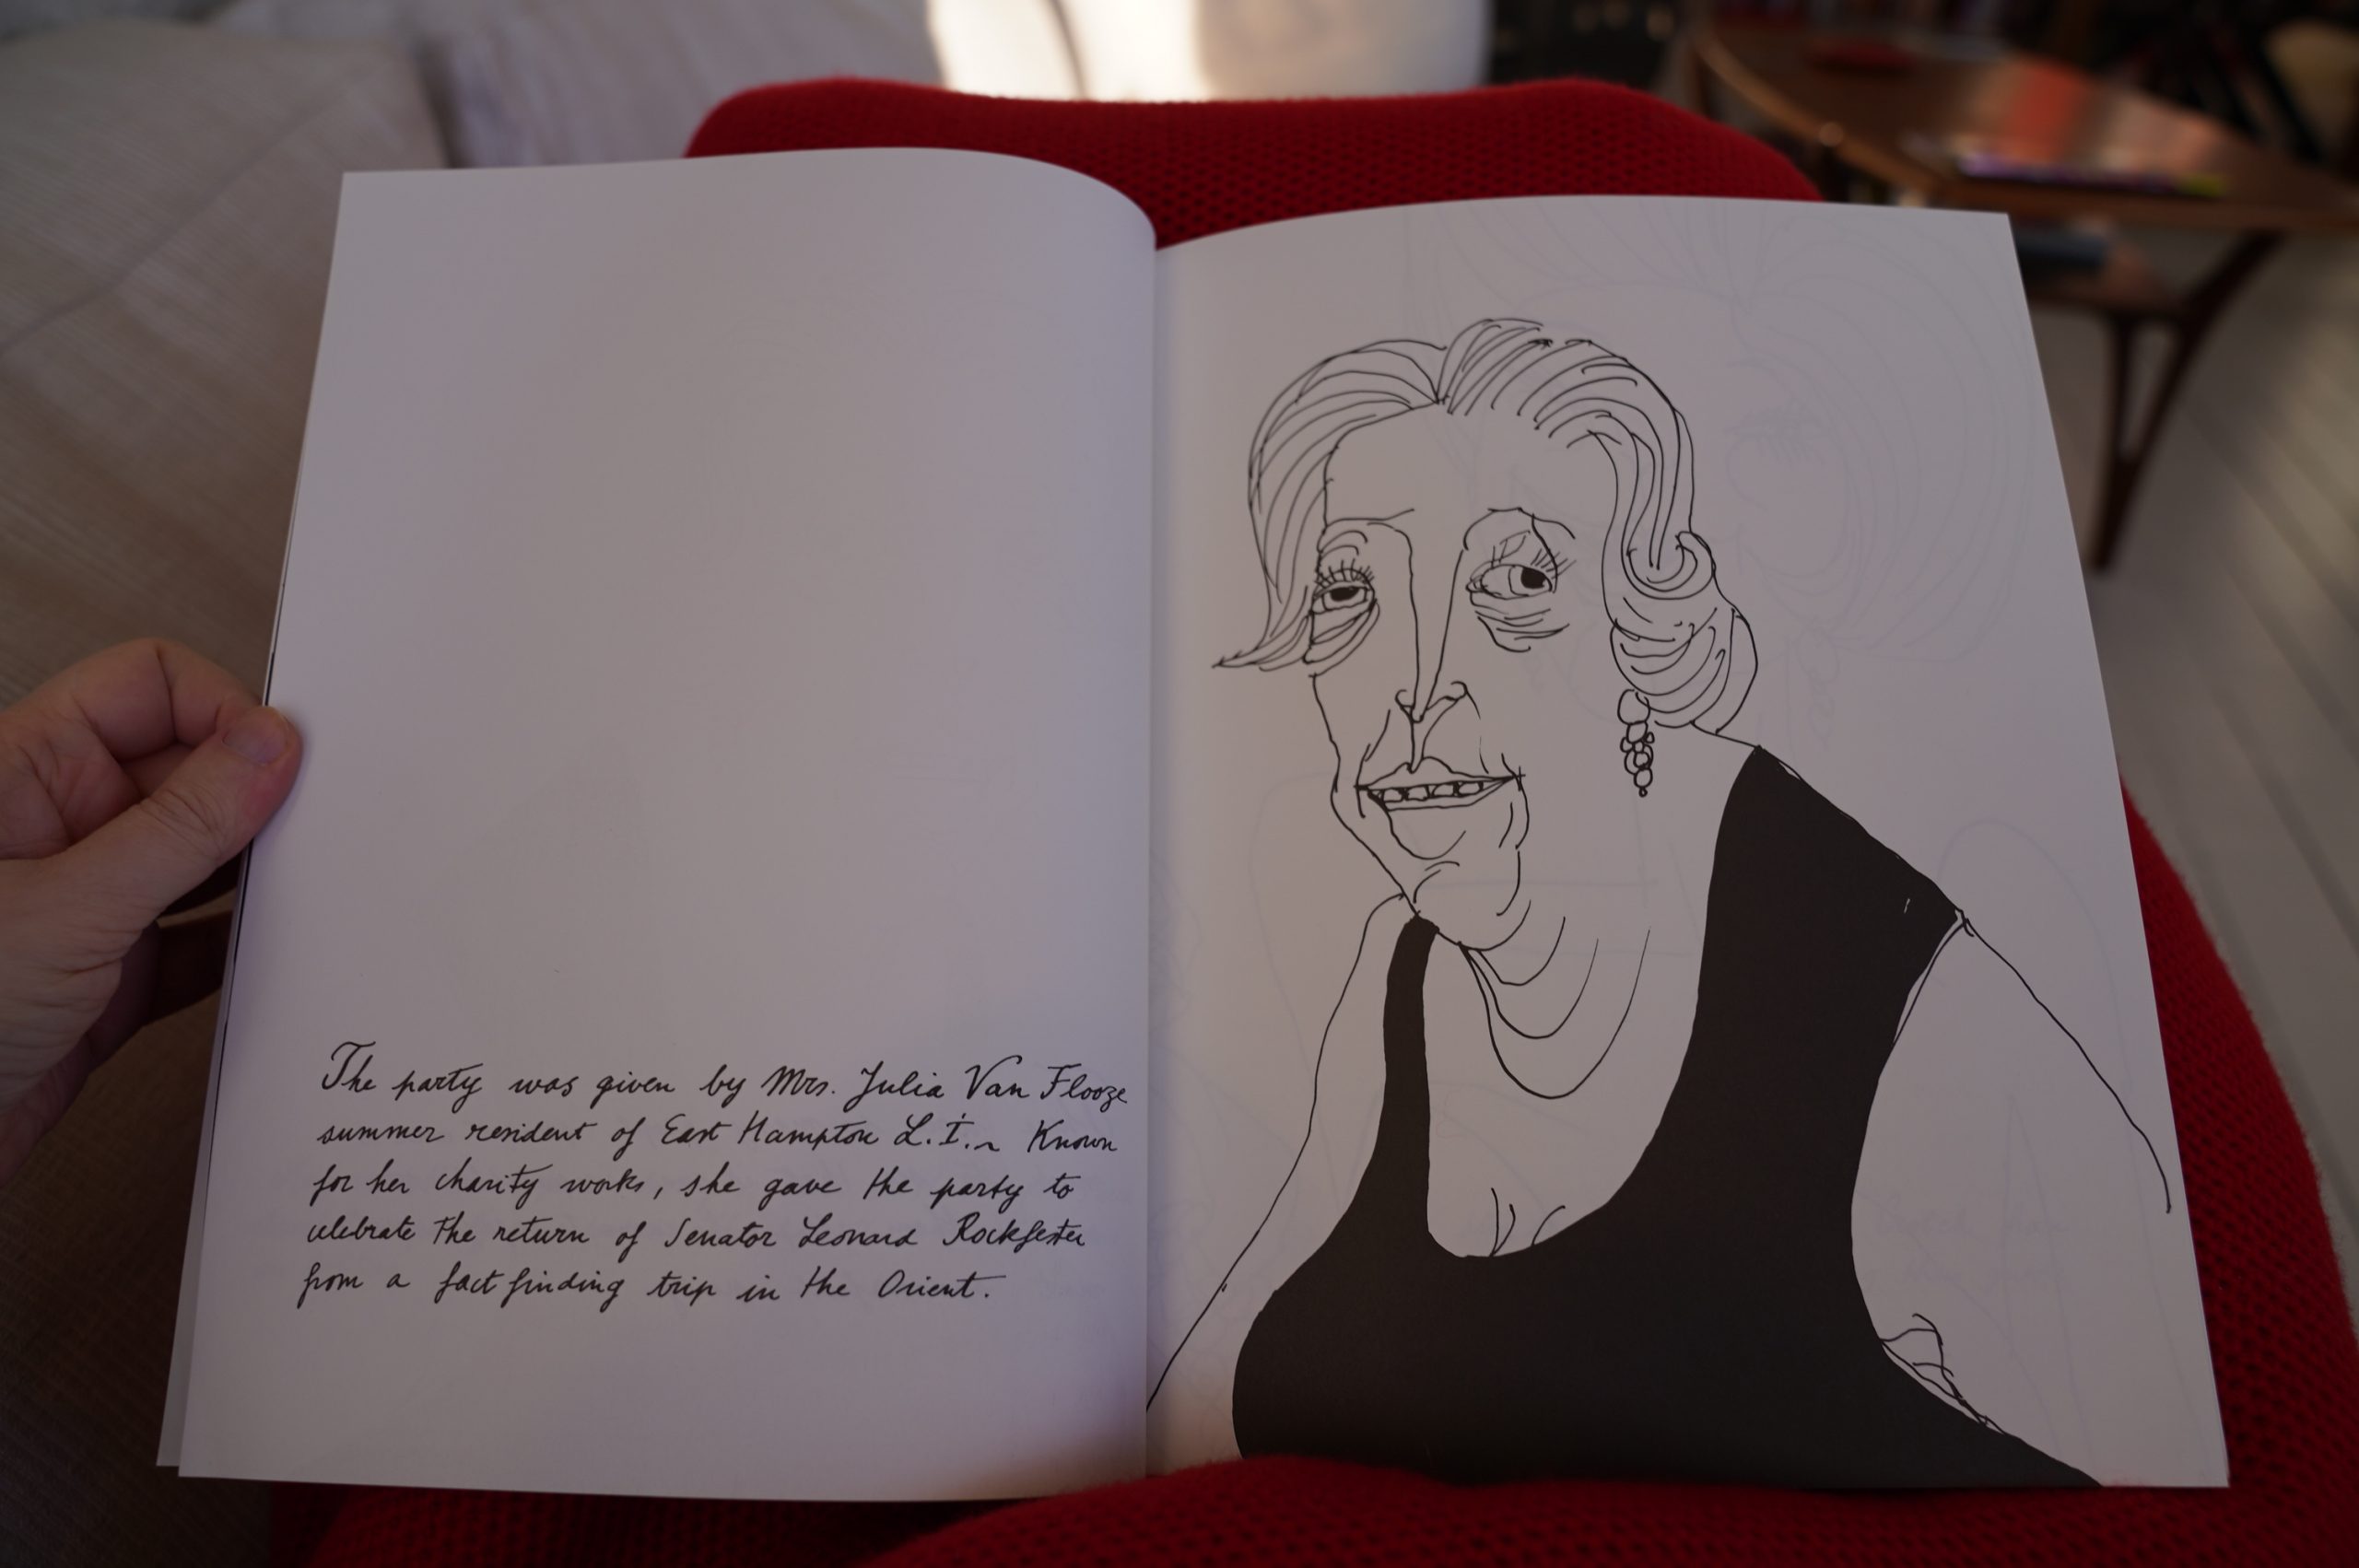 The party was given by Mrs. Julia Van Flooze
summer resident of East Hampton L.I. ~ Known
for her charity works, she gave the party to
celebrate the return of Senator Leonard Rockfester
from a fact finding trip in the Orient.